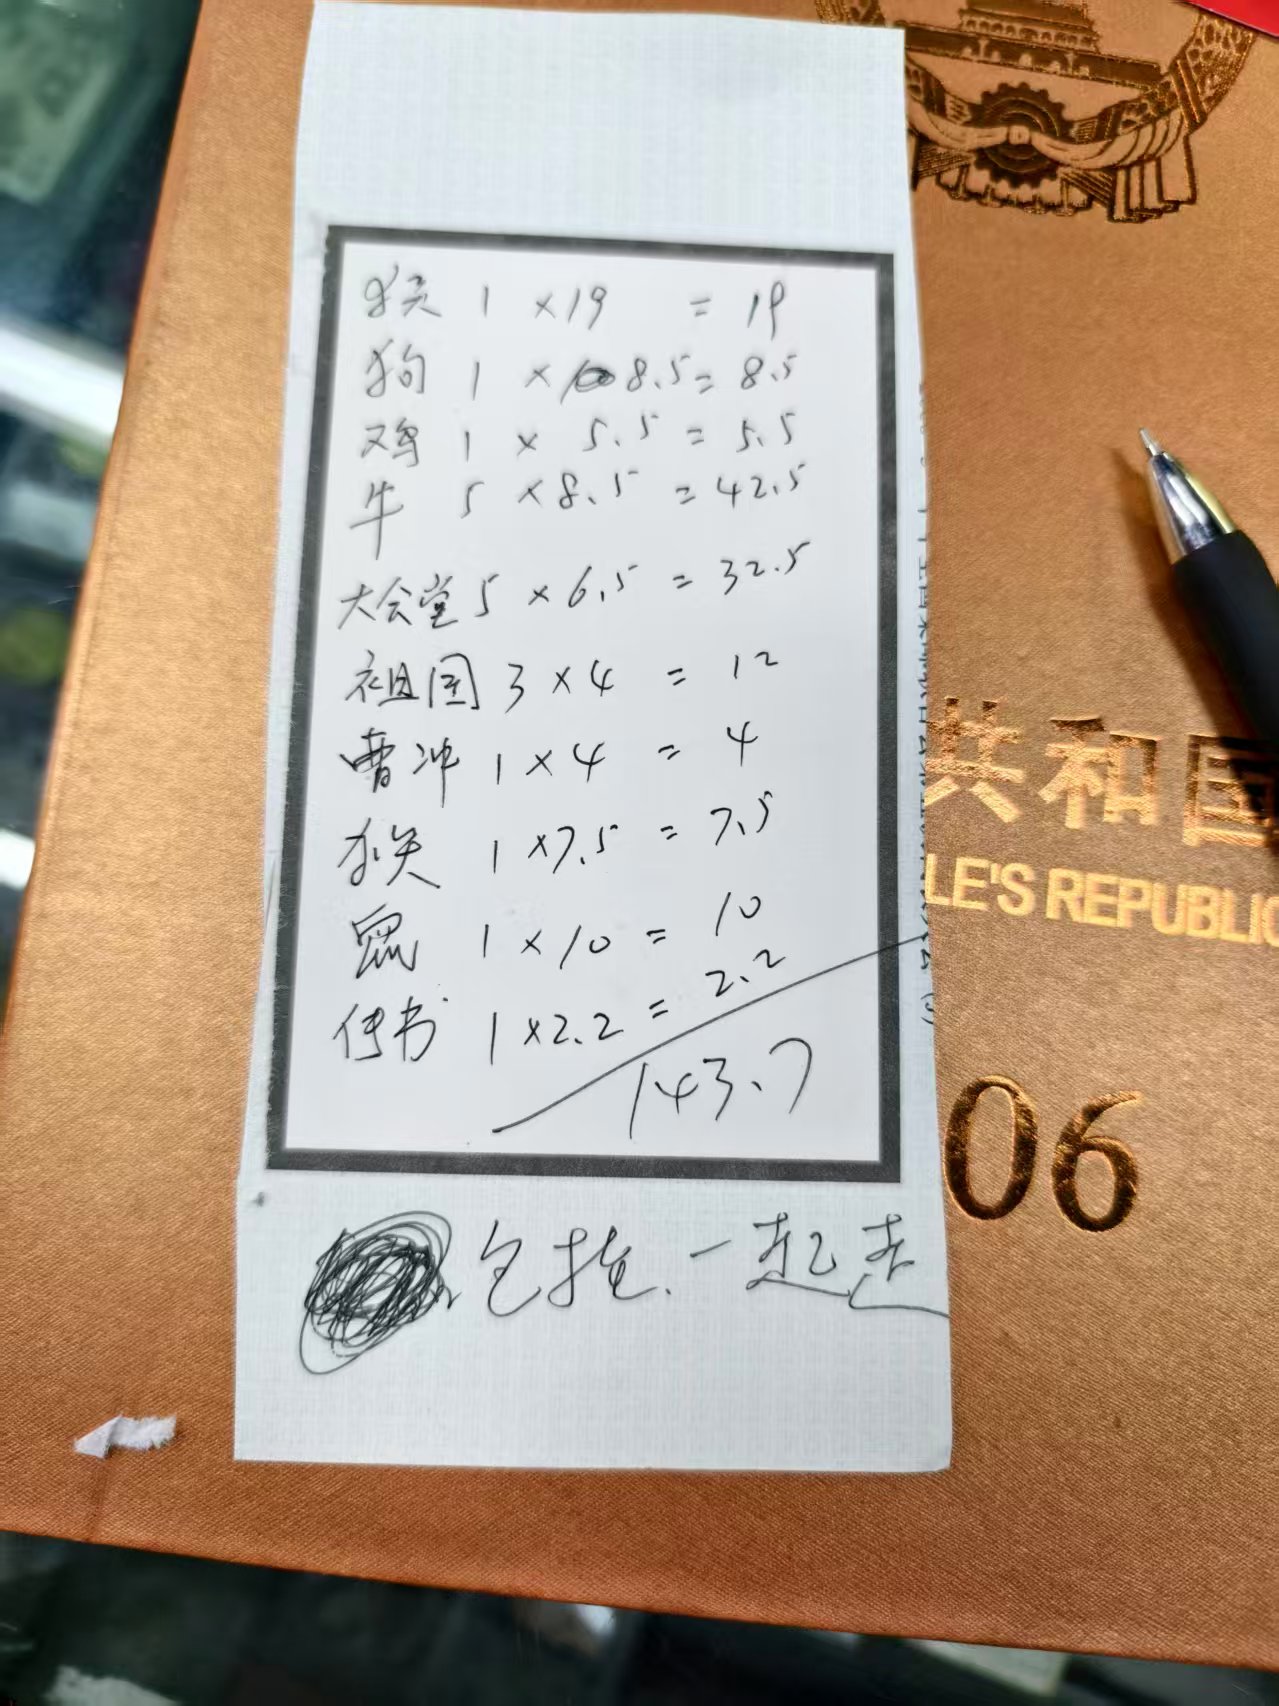 猴 1 ×19 = 19
狗 1 × 8.5 = 8.5
鸡 1 × 5.5 = 5.5
牛 5 ×8.5 = 42.5
大会堂 5 × 6.5 = 32.5
祖国 3 × 4 = 12
曹冲 1 × 4 = 4
猴 1 ×7.5 = 7.5
鼠 1 × 10 = 10
传书 1 ×2.2 = 2.2
143.7
包挂.一起走
共和国
LE'S REPUBLIC
06